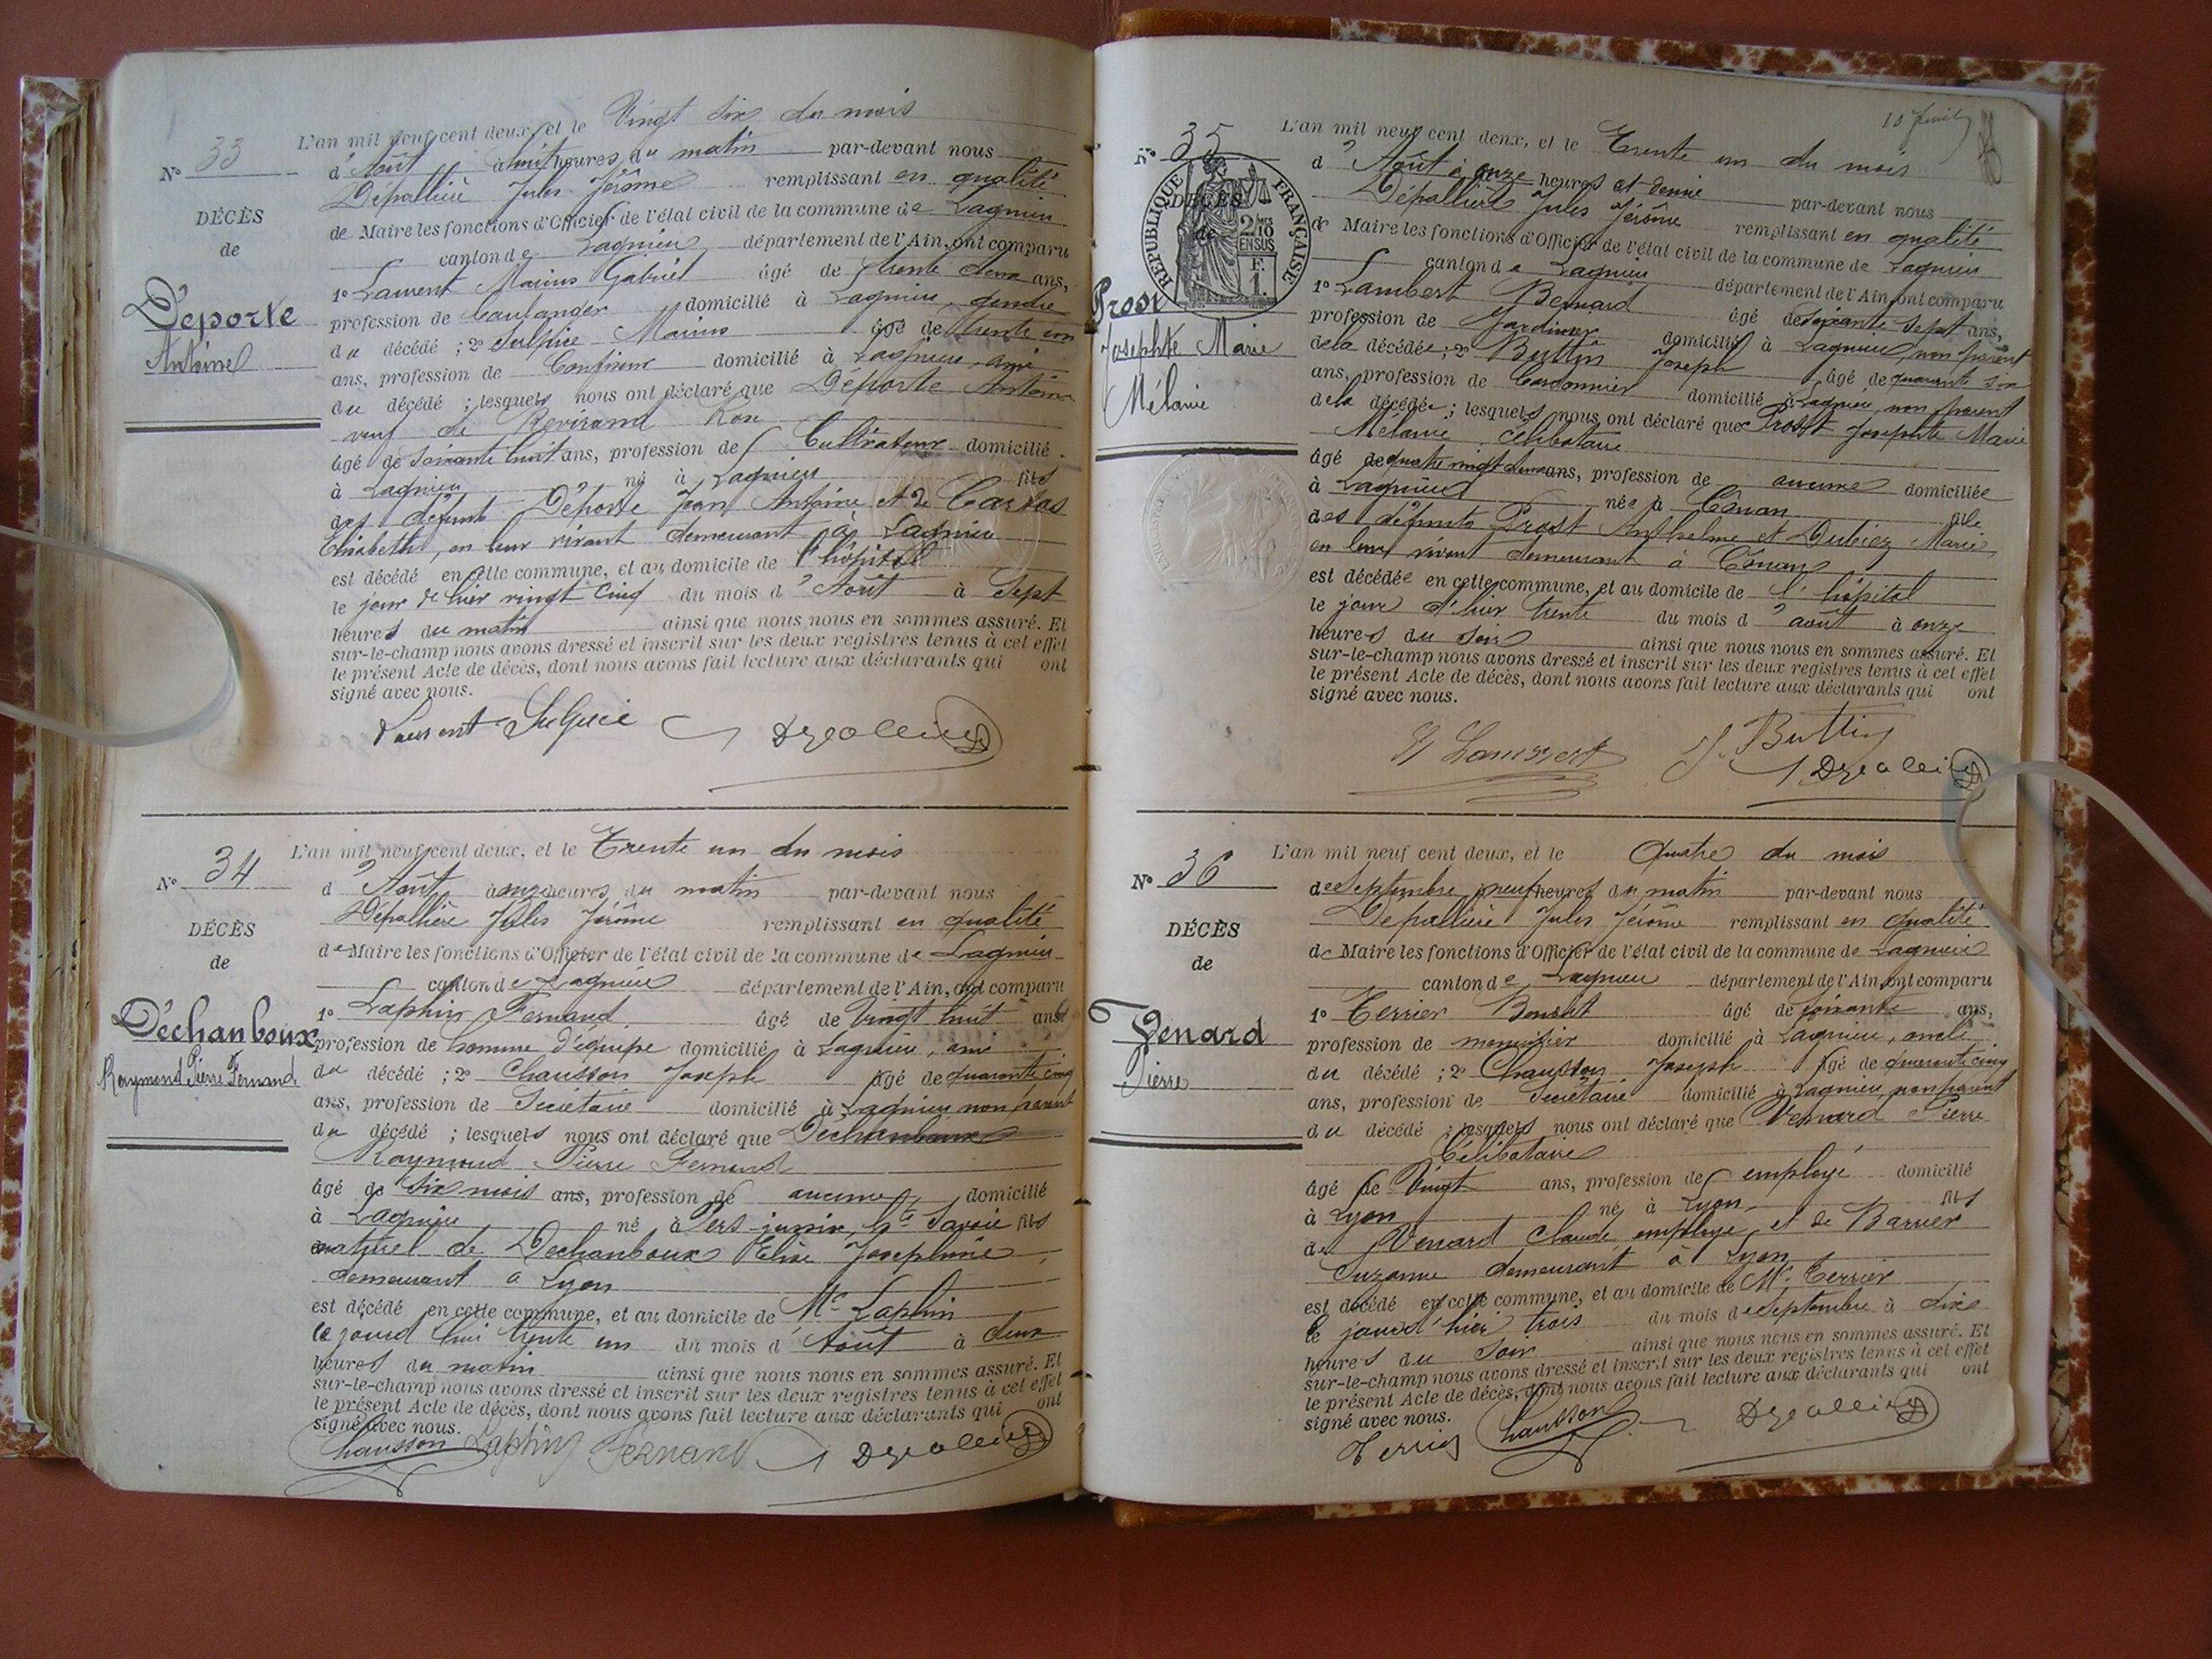 N° 33
DÉCÈS
de
Déporte
Antoine
L'an mil neuf cent deux, et le Vingt six du mois
d'Août à huit heures du matin par-devant nous
Dépallière Jules Jérôme remplissant en qualité
de Maire les fonctions d'Officier de l'état civil de la commune de Lagnieu
canton de Lagnieu département de l'Ain, ont comparu
1° Laurent Marius Gabriel âgé de trente deux ans,
profession de boulanger domicilié à Lagnieu, gendre
du décédé ; 2° Sulpice Marius âgé de trente un
ans, profession de Confiseur domicilié à Lagnieu, ami
du décédé ; lesquels nous ont déclaré que Déporte Antoine
veuf de Rose
âgé de soixante huit ans, profession de Cultivateur domicilié
à Lagnieu né à Lagnieu fils
des défunts Déporte Jean Antoine et de
Elisabeth, en leur vivant demeurant à Lagnieu
est décédé en cette commune, et au domicile de l'hôpital
le jour de hier vingt cinq du mois d'Août à Sept
heures du matin ainsi que nous nous en sommes assuré. Et
sur-le-champ nous avons dressé et inscrit sur les deux registres tenus à cet effet
le présent Acte de décès, dont nous avons fait lecture aux déclarants qui ont
signé avec nous.
Laurent Sulpice
N° 34
DÉCÈS
de
Déchanboux
Raymond Pierre Fernand
L'an mil neuf cent deux, et le Trente un du mois
d'Août à onze heures du matin par-devant nous
Dépallière Jules Jérôme remplissant en qualité
de Maire les fonctions d'Officier de l'état civil de la commune de Lagnieu
canton de Lagnieu département de l'Ain, ont comparu
1° Laphin Fernand âgé de Vingt huit ans.
profession de homme d'équipe domicilié à Lagnieu, ami
du décédé ; 2° Chausson Joseph âgé de quarante cinq
ans, profession de Secrétaire domicilié à Lagnieu non parent
du décédé ; lesquels nous ont déclaré que Déchanboux
Raymond Pierre Fernand
âgé de six mois ans, profession de aucune domicilié
à Lagnieu né à Pers-jussix, Hte Savoie fils
naturel de Dechanboux Elise Josephine,
demeurant à Lyon
est décédé en cette commune, et au domicile de Mr Laphin
ce jourd'hui trente un du mois d'Août à deux
heures du matin ainsi que nous nous en sommes assuré. Et
sur-le-champ nous avons dressé et inscrit sur les deux registres tenus à cet effet
le présent Acte de décès, dont nous avons fait lecture aux déclarants qui ont
signé avec nous.
Chausson Laphin Fernand
N° 35
DÉCÈS
de
RÉPUBLIQUE FRANÇAISE
2/10
EN SUS
F.
1.
Prost
Josephte Marie
Mélanie
L'an mil neuf cent deux, et le Trente un du mois
d'Août à onze heures et demie par-devant nous
Dépallière Jules Jérôme remplissant en qualité
de Maire les fonctions d'Officier de l'état civil de la commune de Lagnieu
canton de Lagnieu département de l'Ain, ont comparu
1° Lambert Bernard âgé de soixante sept ans,
profession de Jardinier domicilié à Lagnieu non parent
de la décédée ; 2° Buttin Joseph âgé de quarante six
ans, profession de Cordonnier domicilié à Lagnieu, non parent
de la décédée ; lesquels nous ont déclaré que Prost Josephte Marie
Mélanie célibataire
âgé de quatre vingt deux ans, profession de aucune domiciliée
à Lagnieu née à Cônan fille
des défunts Prost Anthelme et Dubiez Marie
en leur vivant demeurant à Cônan
est décédée en cette commune, et au domicile de l'hôpital
le jour d'hier trente du mois d'août à onze
heures du soir ainsi que nous nous en sommes assuré. Et
sur-le-champ nous avons dressé et inscrit sur les deux registres tenus à cet effet
le présent Acte de décès, dont nous avons fait lecture aux déclarants qui ont
signé avec nous.
Lambert J. Buttin
N° 36
DÉCÈS
de
Venard
Pierre
L'an mil neuf cent deux, et le Quatre du mois
de Septembre à neuf heures du matin par-devant nous
Dépallière Jules Jérôme remplissant en qualité
de Maire les fonctions d'Officier de l'état civil de la commune de Lagnieu
canton de Lagnieu département de l'Ain, ont comparu
1° Terrier Benoit âgé de soixante ans,
profession de menuisier domicilié à Lagnieu, oncle
du décédé ; 2° Chausson Joseph âgé de quarante cinq
ans, profession de Secrétaire domicilié à Lagnieu, non parent
du décédé ; lesquels nous ont déclaré que Venard Pierre
Célibataire
âgé de Vingt ans, profession de employé domicilié
à Lyon né à Lyon fils
de Venard Claude employé et de Barrier
Suzanne demeurant à Lyon
est décédé en cette commune, et au domicile de Mr Terrier
le jour d'hier trois du mois de Septembre à dix
heures du Soir ainsi que nous nous en sommes assuré. Et
sur-le-champ nous avons dressé et inscrit sur les deux registres tenus à cet effet
le présent Acte de décès, dont nous avons fait lecture aux déclarants qui ont
signé avec nous.
Terrier Chausson